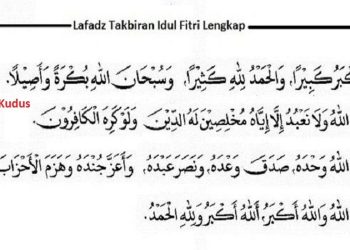 Lafadz Takbiran Idul Fitri Lengkap
كَبِيْرًا، وَالْحَمْدُ لِلّٰهِ كَثِيْرًا، وَسُبْحَانَ اللّٰهِ بُكْرَةً وَأَصِيْلًا.
Kudus
اللّٰهُ وَلَا نَعْبُدُ إِلَّا إِيَّاهُ مُخْلِصِيْنَ لَهُ الدِّيْنَ وَلَوْ كَرِهَ الْكَافِرُوْنَ.
اللّٰهُ وَحْدَهُ، صَدَقَ وَعْدَهُ، وَنَصَرَ عَبْدَهُ، وَأَعَزَّ جُنْدَهُ وَهَزَمَ الْأَحْزَابَ
اللّٰهُ وَاللّٰهُ أَكْبَرُ، اَللّٰهُ أَكْبَرُ وَلِلّٰهِ الْحَمْدُ.